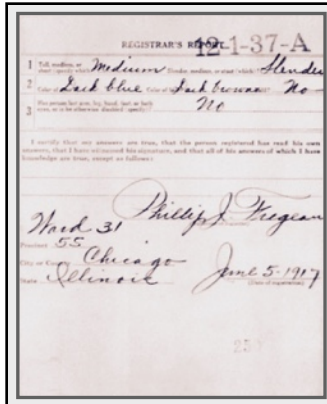 REGISTRAR'S REPORT
12-1-37-A
1 Tall, medium, or short (specify which)? Medium Slender, medium, or stout (which)? Slender
2 Color of Dark blue Color of Dark brown No
3 Has person lost arm, leg, hand, foot, or both eyes, or is he otherwise disabled (specify)?
No
I certify that my answers are true, that the person registered has read his own
answers, that I have witnessed his signature, and that all of his answers of which I have
knowledge are true, except as follows:
Phillip J.
Ward 31
Precinct 55
City or County Chicago
State Illinois
June 5-1917
(Date of registration)